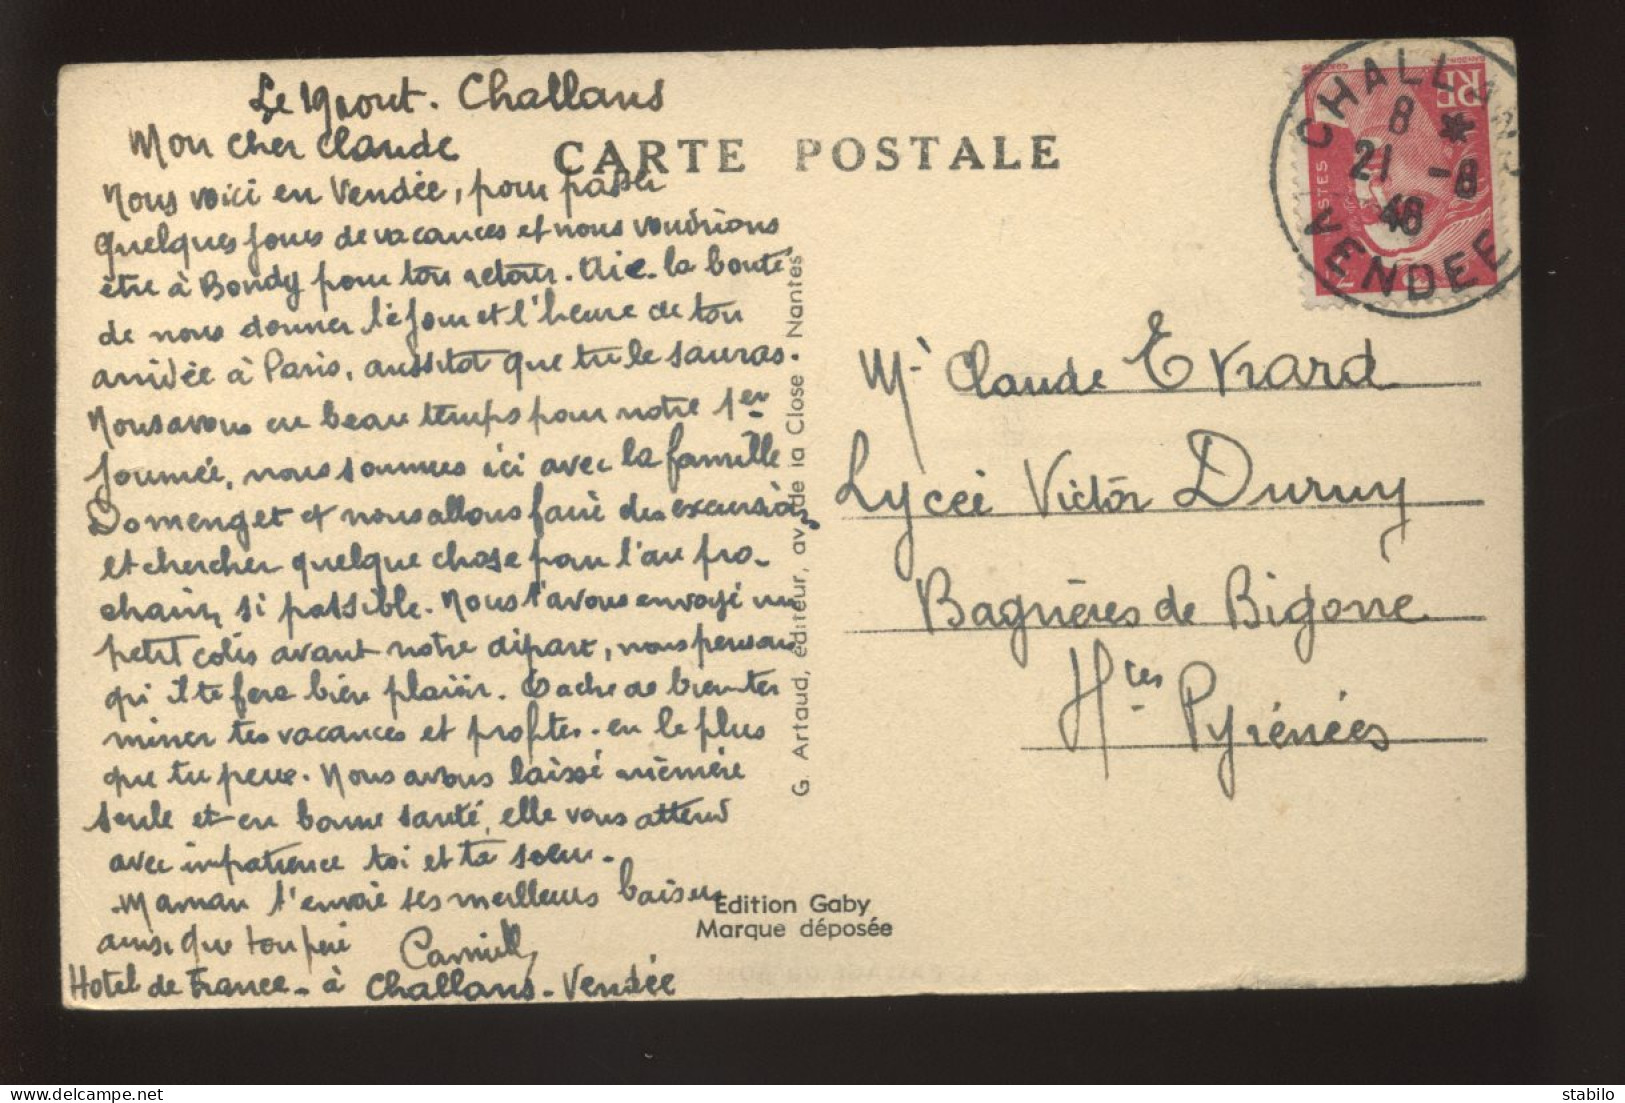 Le 19 aout. Challans
Mon cher Claude
CARTE POSTALE
Nous voici en Vendée, pour passer
quelques jours de vacances et nous voudrions
être à Bondy pour ton retour. Aie la bonté
de nous donner le jour et l'heure de ton
arrivée à Paris, aussitot que tu le sauras.
Nous avons eu beau temps pour notre 1er
journée, nous sommes ici avec la famille
Domenget et nous allons faire des excursions
et chercher quelque chose pour l'an pro-
chain, si possible. Nous t'avons envoyé un
petit colis avant notre départ, nous pensons
qu'il te fera bien plaisir. Tache de bien ter
miner tes vacances et profites-en le plus
que tu peux. Nous avons laissé mémère
seule et en bonne santé, elle vous attend
avec impatience toi et ta soeur.
Maman t'envoie ses meilleurs baisers
ainsi que ton père Camille
Hotel de France - à Challans - Vendée
G. Artaud, éditeur, av. de la Close Nantes
Edition Gaby
Marque déposée
RF
POSTES
CHALLANS
8 *
21 -8
48
VENDEE
Mr Claude Evrard
Lycée Victor Duruy
Bagnères de Bigorre
Htes Pyrénées
delcampe.net
stabilo